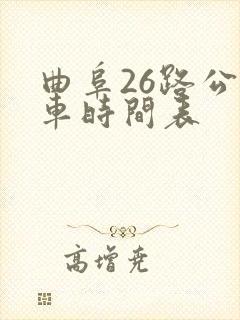 曲阜26路公
車時間表
高增堯